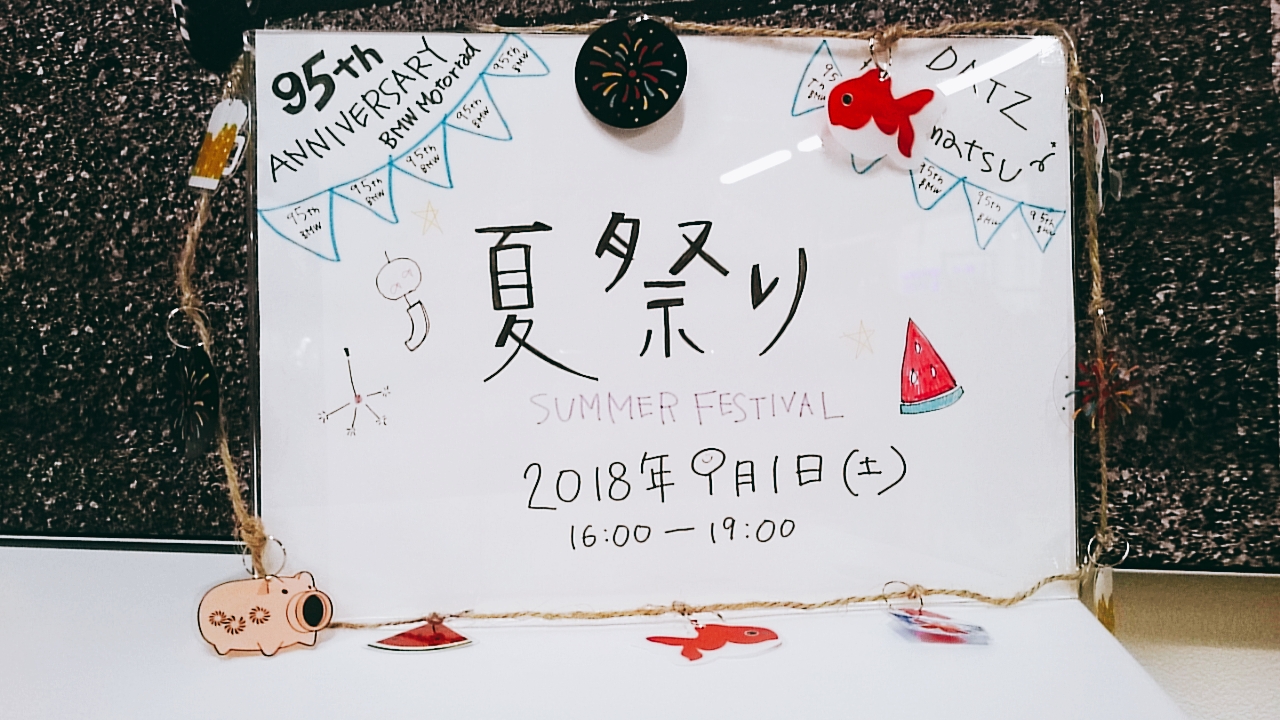 95th
ANNIVERSARY
BMW Motorrad
95th
BMW
95th
BMW
95th
BMW
95th
BMW
95th
BMW
DATZ
natsu
95th
BMW
95th
BMW
95th
BMW
夏祭り
SUMMER FESTIVAL
2018年9月1日(土)
16:00ー19:00